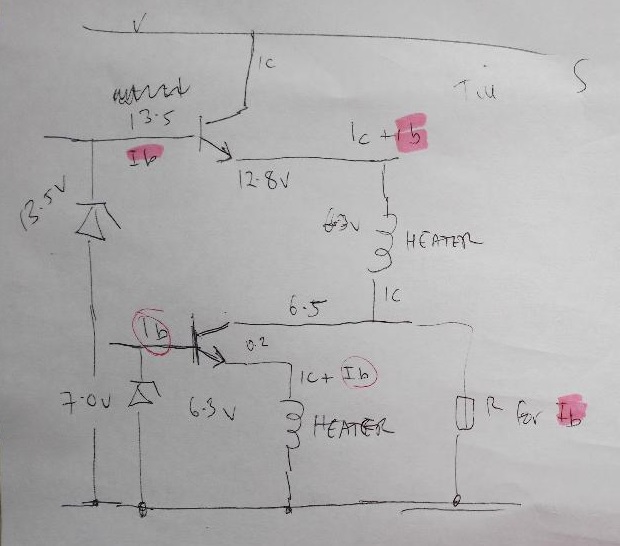 V
Ic
13.5
Ib
Ic + Ib
12.8V
13.5V
6.3V
HEATER
Ic
6.5
Ib
0.2
Ic + Ib
7.0V
6.3V
HEATER
R for Ib
S